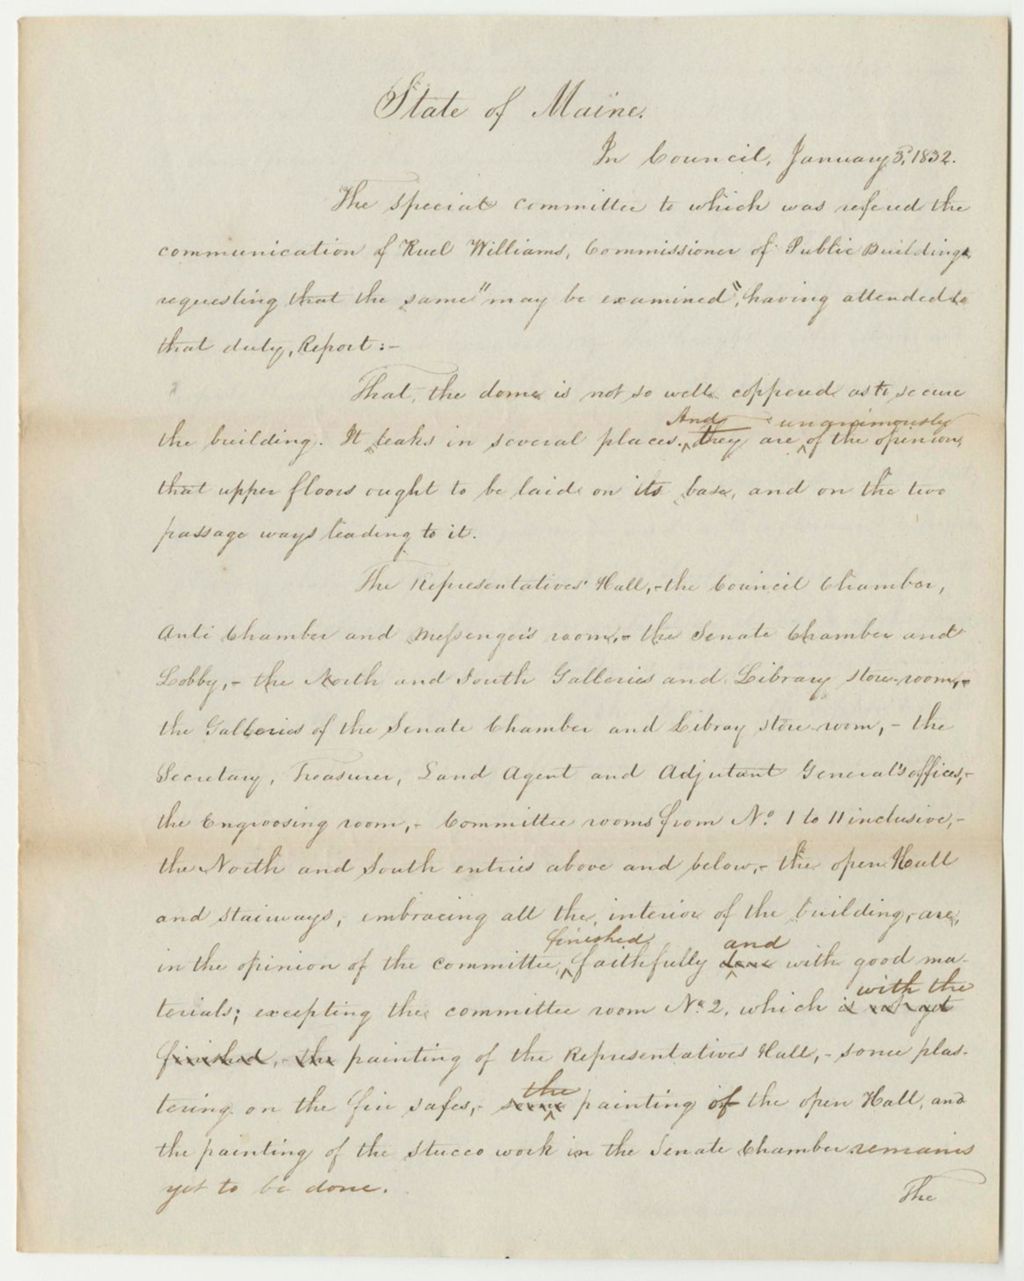 State of Maine.
In Council, January 3, 1832.
The special committee to which was refered the
communication of Ruel Williams, Commissioner of Public Buildings,
requesting that the same "may be examined", having attended to
that duty, Report:-
That, the dome is not so well coppered as to secure
And unanimously
the building. It leaks in several places. they are of the opinion,
that upper floors ought to be laid on its base, and on the two
passage ways leading to it.
The Representatives' Hall,- the Council Chamber,
Anti Chamber and Messenger's room,- the Senate Chamber and
Lobby,- the North and South Galleries and Library store-room,-
the Galleries of the Senate Chamber and Libray store room,- the
Secretary, Treasurer, Land Agent and Adjutant General's offices,-
the Engrossing room,- Committee rooms from No. 1 to 11 inclusive,-
the North and South entries above and below,- the open Hall
and stairways, embracing all the interior of the building, are,
finished and
in the opinion of the committee, faithfully done with good ma-
with the
terials; excepting the committee room No. 2, which is not yet
finished,- the painting of the Representatives Hall,- some plas-
the
tering on the fire safes,- some painting of the open Hall, and
the painting of the stucco work in the Senate Chamber remains
yet to be done.
The